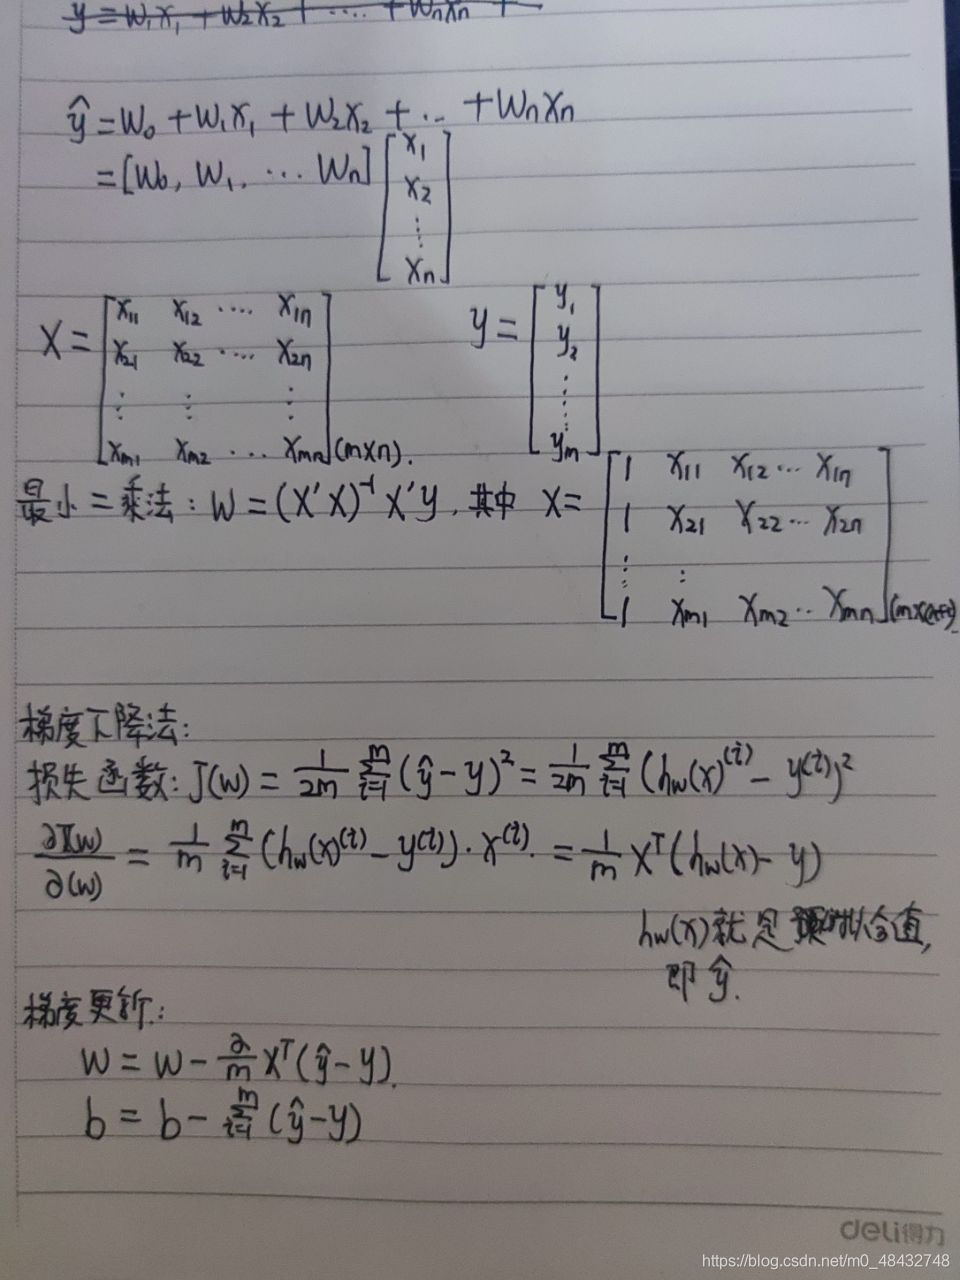 y = w₁x₁ + w₂x₂ + ···· + wₙxₙ +
ŷ = w₀ + w₁x₁ + w₂x₂ + ·· + wₙxₙ
= [w₀, w₁, ··· wₙ] [x₁ x₂ ⋮ xₙ]
X = [x₁₁ x₁₂ ···· x₁ₙ
x₂₁ x₂₂ ···· x₂ₙ
⋮ ⋮ ⋮
xₘ₁ xₘ₂ ··· xₘₙ] (m×n).
y = [y₁ y₂ ⋮ yₘ]
最小二乘法: W = (X'X)⁻¹X'y, 其中 X = [1 x₁₁ x₁₂ ··· x₁ₙ
1 x₂₁ x₂₂ ··· x₂ₙ
⋮ ⋮
1 xₘ₁ xₘ₂ ·· xₘₙ] (m×(n+1))
梯度下降法:
损失函数: J(w) = 1/2m Σᵢ₌₁ᵐ (ŷ - y)² = 1/2m Σᵢ₌₁ᵐ (h_w(x)⁽ⁱ⁾ - y⁽ⁱ⁾)²
∂J(w)/∂(w) = 1/m Σᵢ₌₁ᵐ (h_w(x)⁽ⁱ⁾ - y⁽ⁱ⁾)·x⁽ⁱ⁾. = 1/m Xᵀ(h_w(x) - y)
h_w(x)就是拟合值,
即 ŷ.
梯度更新:
W = W - ∂/m Xᵀ(ŷ - y).
b = b - Σᵢ₌₁ᵐ (ŷ - y)
deli得力
https://blog.csdn.net/m0_48432748